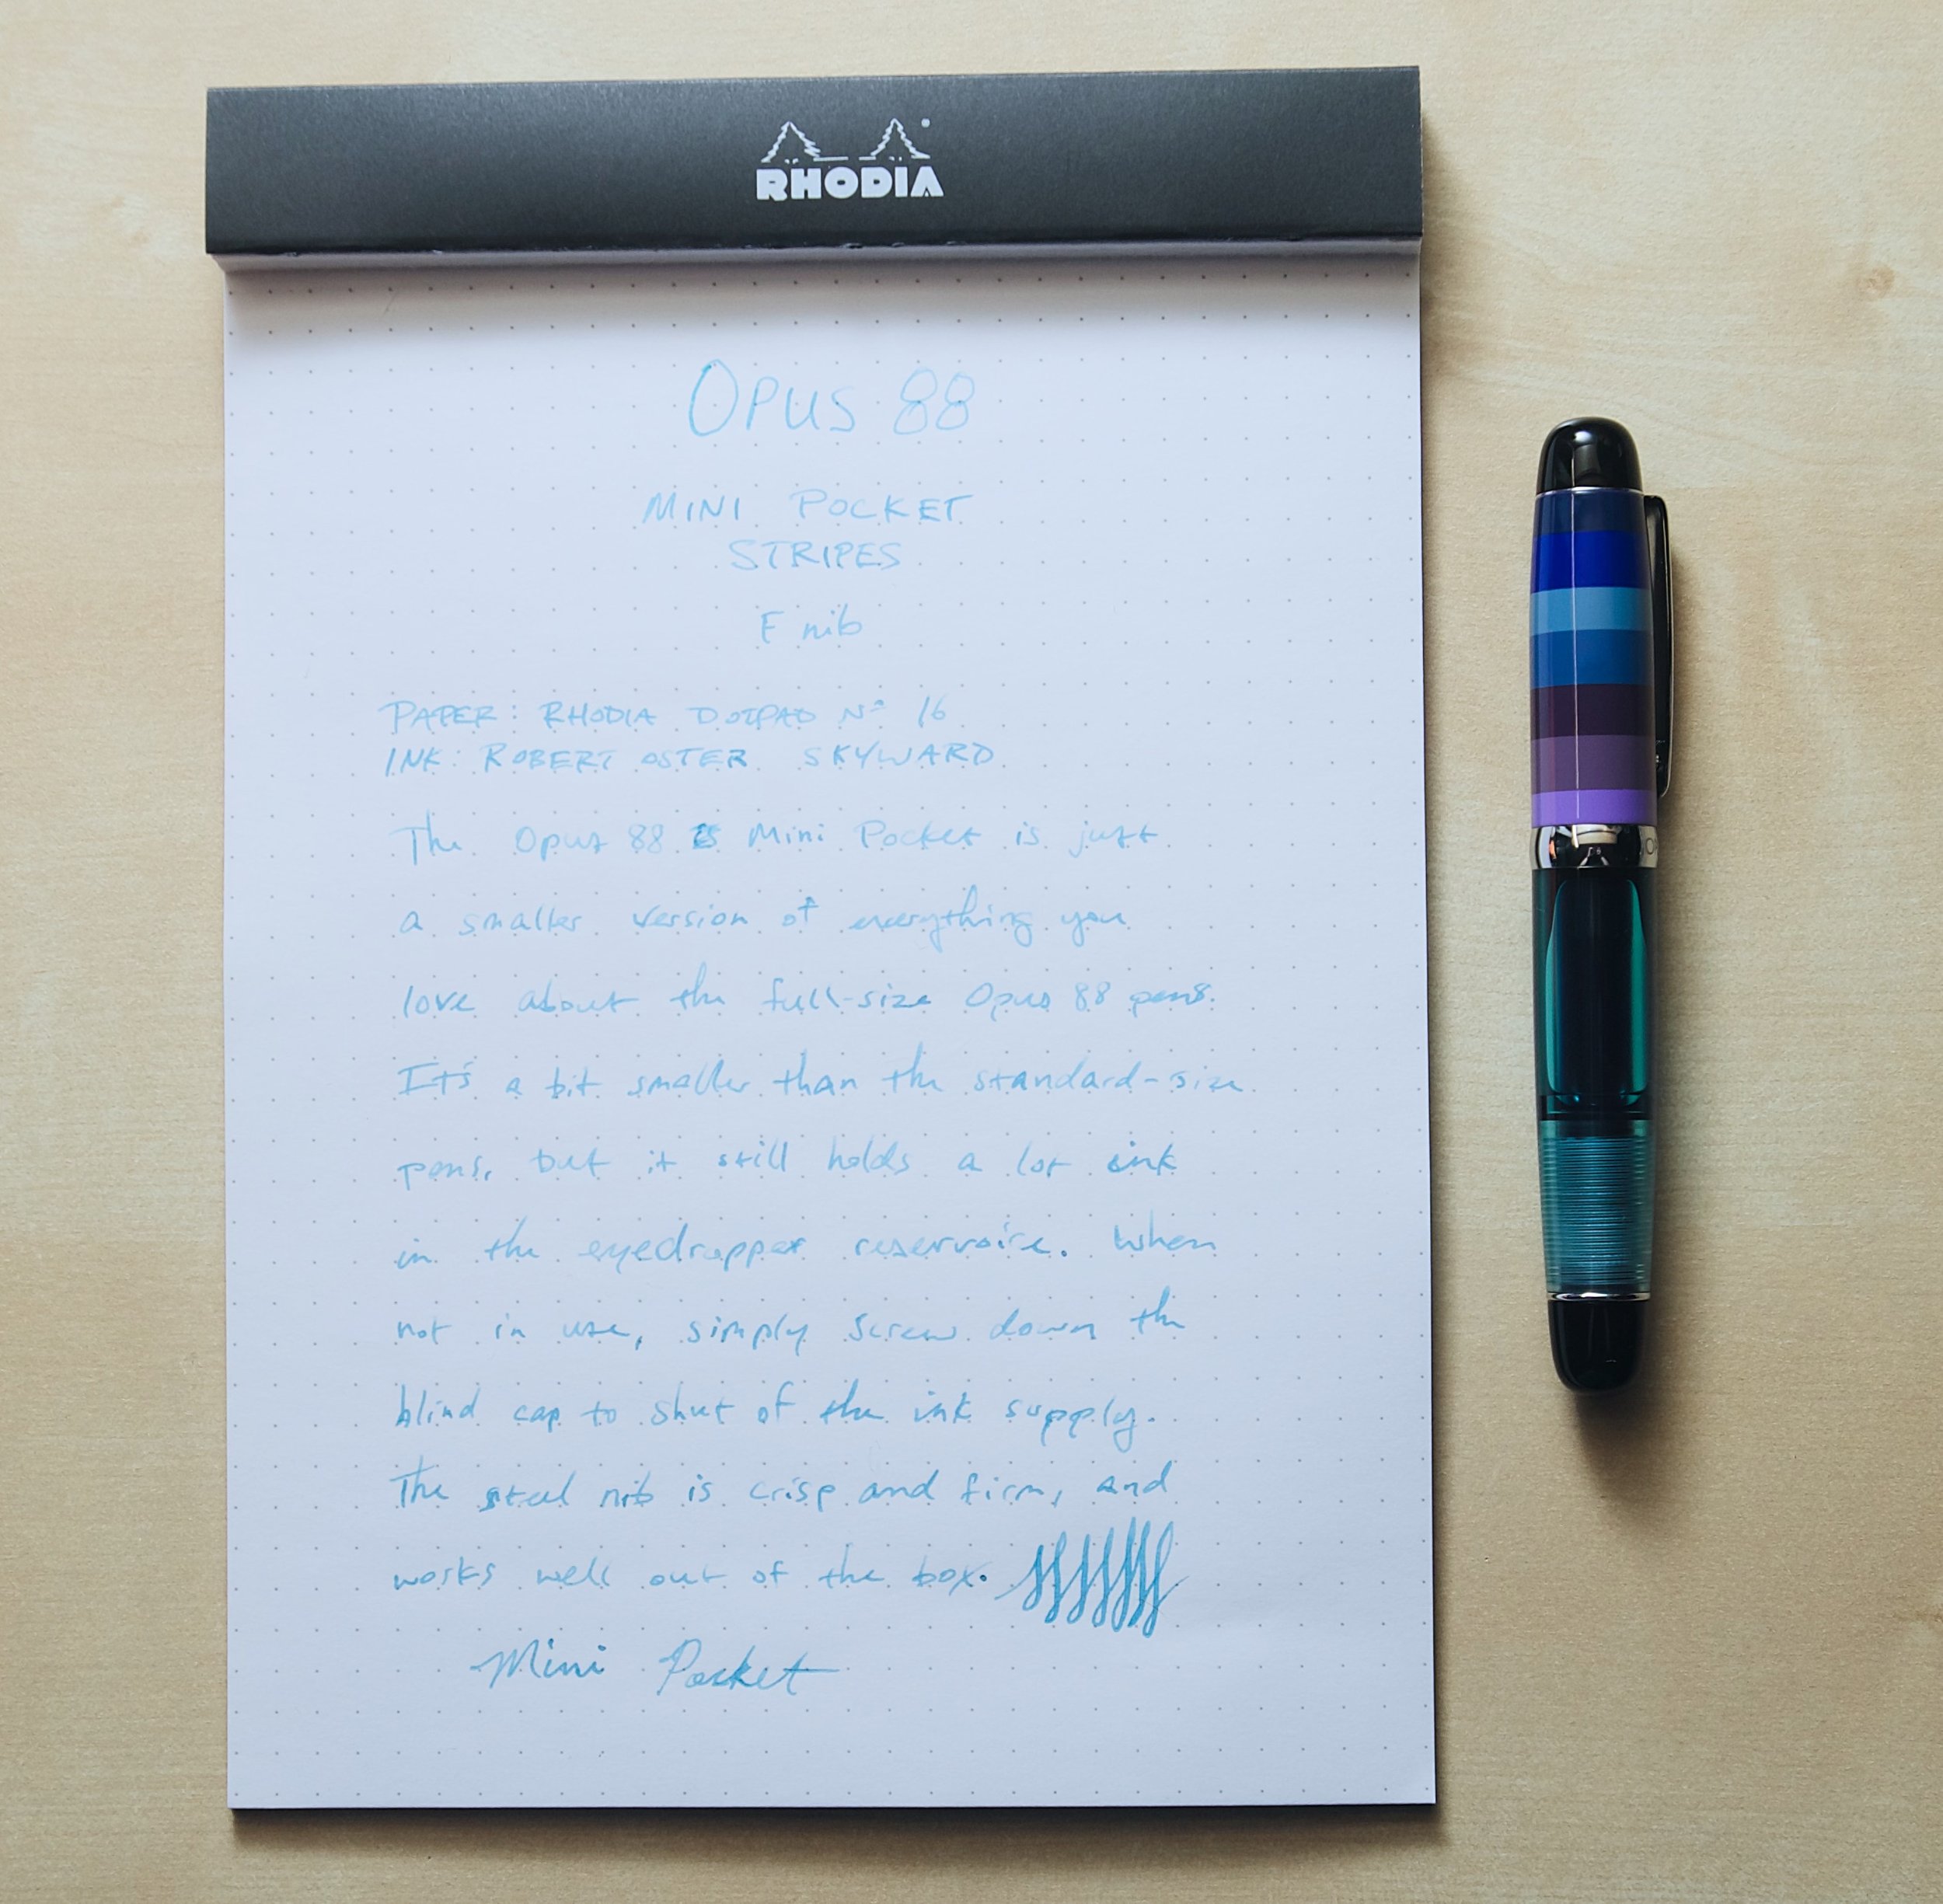 RHODIA
OPUS 88
MINI POCKET
STRIPES
F nib
PAPER: RHODIA DOTPAD Nº 16
INK: ROBERT OSTER SKYWARD
The Opus 88 Mini Pocket is just
a smaller version of everything you
love about the full-size Opus 88 pens.
It's a bit smaller than the standard-size
pens, but it still holds a lot ink
in the eyedropper reservoire. When
not in use, simply screw down the
blind cap to shut of the ink supply.
The steel nib is crisp and firm, and
works well out of the box.
Mini Pocket